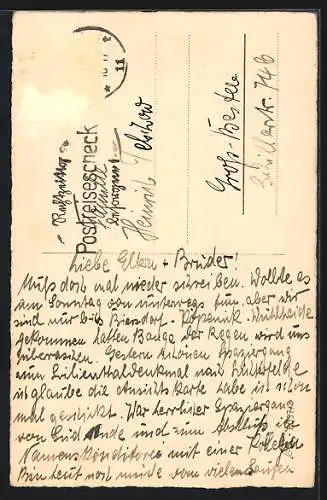 11
Rechtzeitig
Postreisescheck
besorgen!
Heinrich
Groß-Besten
Schillerstr. 746
Liebe Eltern + Brüder!
Muß doch mal wieder schreiben. Wollte es
am Sonntag von unterwegs tun, aber wir
sind nur bis Biesdorf - Köpenick. Wuhlheide
gekommen hatten Bange der Regen wird uns
überraschen. Gestern schönen Spaziergang
zum Lilienthaldenkmal nach Lichterfelde
ich glaube die Ansichtskarte habe ich schon
mal geschickt. War herrlicher Spaziergang
von Süd Ende und zum Abschluß in
Konditorei mit einer
Bin heut noch müde vom vielen Laufen